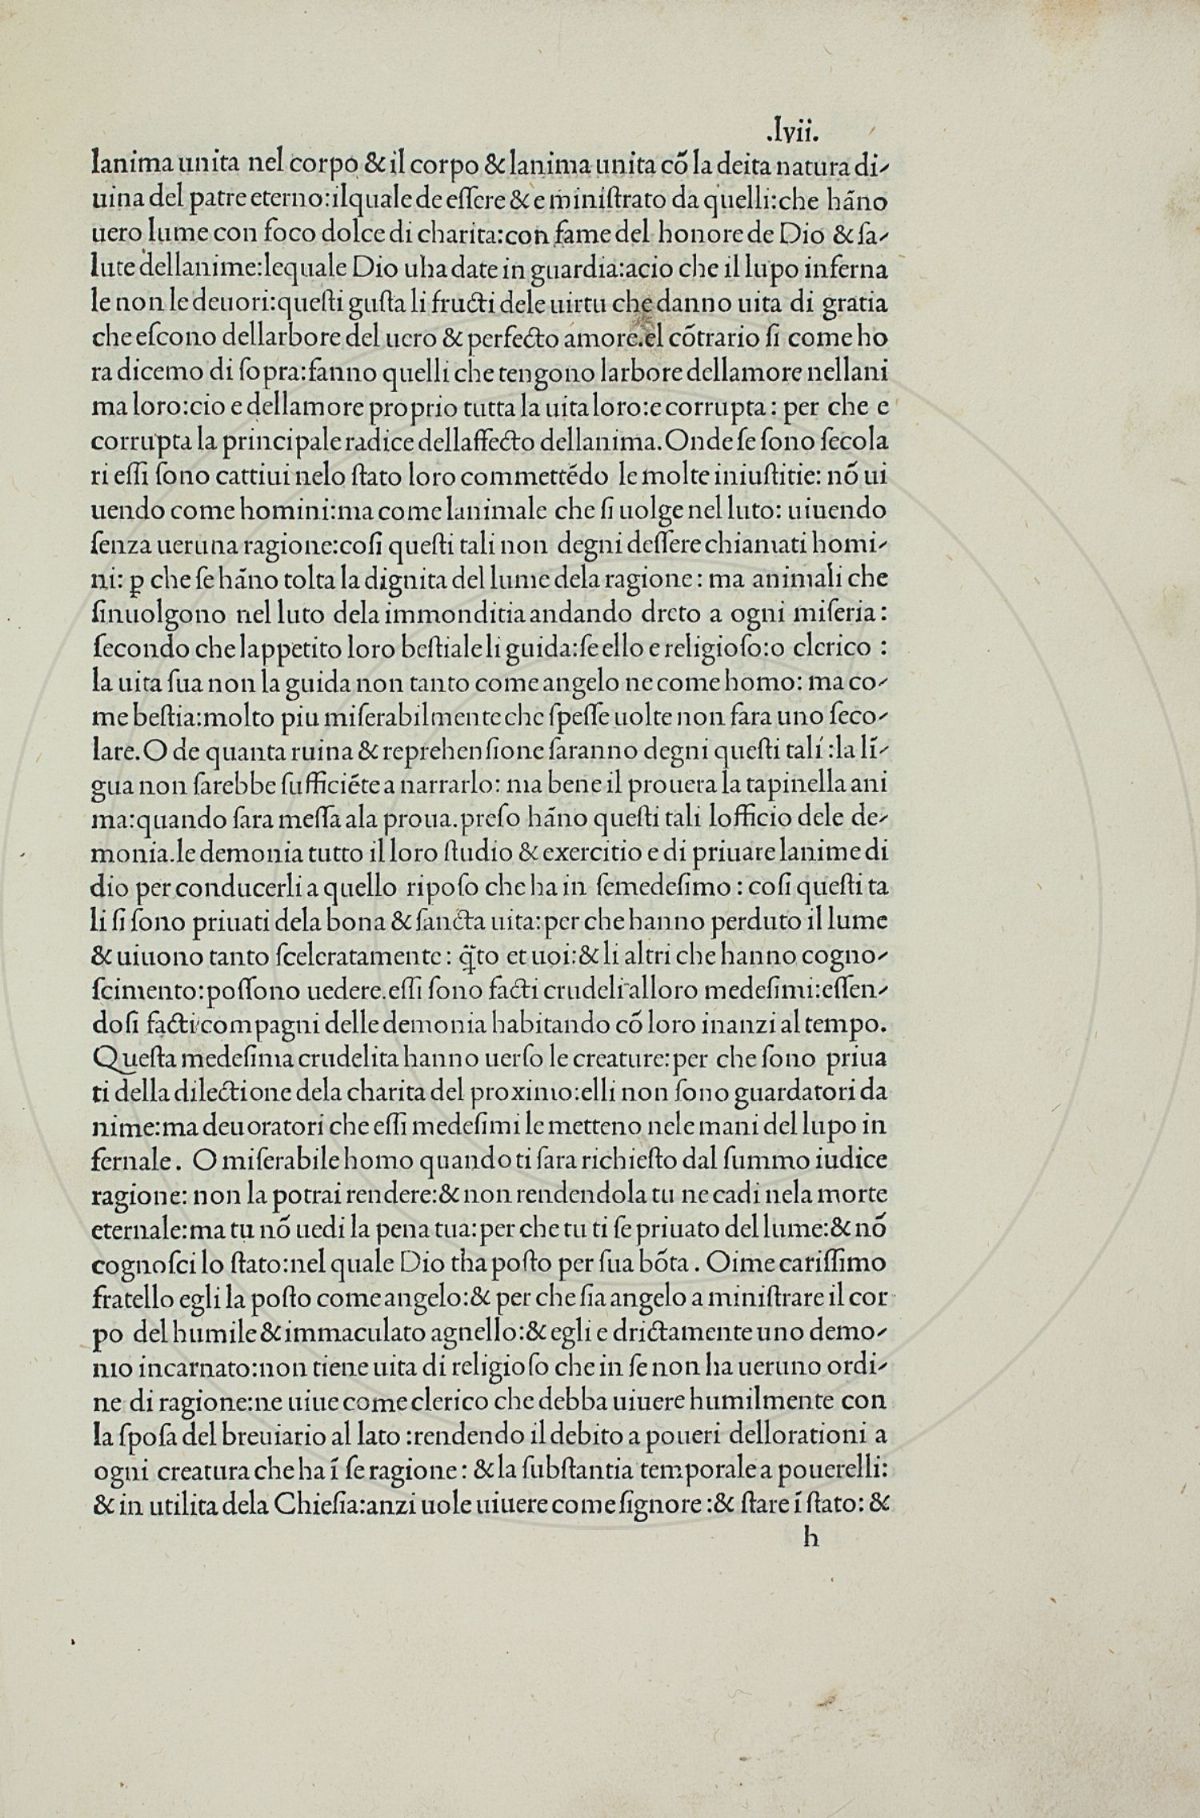 .lvii.
lanima unita nel corpo & il corpo & lanima unita cõ la deita natura di-
uina del patre eterno:ilquale de eſſere & e miniſtrato da quelli:che hãno
uero lume con foco dolce di charita:con fame del honore de Dio & ſa-
lute dellanime:lequale Dio uha date in guardia:acio che il lupo inferna
le non le deuori:queſti guſta li fructi dele uirtu che danno uita di gratia
che eſcono dellarbore del uero & perfecto amore.el cõtrario ſi come ho
ra dicemo di ſopra:fanno quelli che tengono larbore dellamore nellani
ma loro:cio e dellamore proprio tutta la uita loro:e corrupta: per che e
corrupta la principale radice dellaffecto dellanima.Onde ſe ſono ſecola
ri eſſi ſono cattiui nelo ſtato loro commettẽdo le molte iniuſtitie: nõ ui
uendo come homini:ma come lanimale che ſi uolge nel luto: uiuendo
ſenza ueruna ragione:coſi queſti tali non degni deſſere chiamati homi-
ni: ꝑ che ſe hãno tolta la dignita del lume dela ragione: ma animali che
ſinuolgono nel luto dela immonditia andando dreto a ogni miſeria:
ſecondo che lappetito loro beſtiale li guida:ſe ello e religioſo:o clerico :
la uita ſua non la guida non tanto come angelo ne come homo: ma co-
me beſtia:molto piu miſerabilmente che ſpeſſe uolte non fara uno ſeco-
lare.O de quanta ruina & reprehenſione ſaranno degni queſti tali :la lĩ-
gua non ſarebbe ſufficiẽte a narrarlo: ma bene il prouera la tapinella ani
ma:quando ſara meſſa ala proua.preſo hãno queſti tali lofficio dele de-
monia.le demonia tutto il loro ſtudio & exercitio e di priuare lanime di
dio per conducerli a quello ripoſo che ha in ſemedeſimo : coſi queſti ta
li ſi ſono priuati dela bona & ſancta uita:per che hanno perduto il lume
& uiuono tanto ſceleratamente: q̃to et uoi:& li altri che hanno cogno-
ſcimento:poſſono uedere.eſſi ſono facti crudeli alloro medeſimi:eſſen-
doſi facti compagni delle demonia habitando cõ loro inanzi al tempo.
Queſta medeſima crudelita hanno uerſo le creature:per che ſono priua
ti della dilectione dela charita del proximo:elli non ſono guardatori da
nime:ma deuoratori che eſſi medeſimi le metteno nele mani del lupo in
fernale. O miſerabile homo quando ti ſara richieſto dal ſummo iudice
ragione: non la potrai rendere:& non rendendola tu ne cadi nela morte
eternale:ma tu nõ uedi la pena tua:per che tu ti ſe priuato del lume:& nõ
cognoſci lo ſtato:nel quale Dio tha poſto per ſua bõta . Oime cariſſimo
fratello egli la poſto come angelo:& per che ſia angelo a miniſtrare il cor
po del humile & immaculato agnello:& egli e drictamente uno demo-
nio incarnato:non tiene uita di religioſo che in ſe non ha ueruno ordi-
ne di ragione:ne uiue come clerico che debba uiuere humilmente con
la ſpoſa del breuiario al lato :rendendo il debito a poueri dellorationi a
ogni creatura che ha ĩ ſe ragione: & la ſubſtantia temporale a pouerelli:
& in utilita dela Chieſia:anzi uole uiuere come ſignore :& ſtare ĩ ſtato: &
h